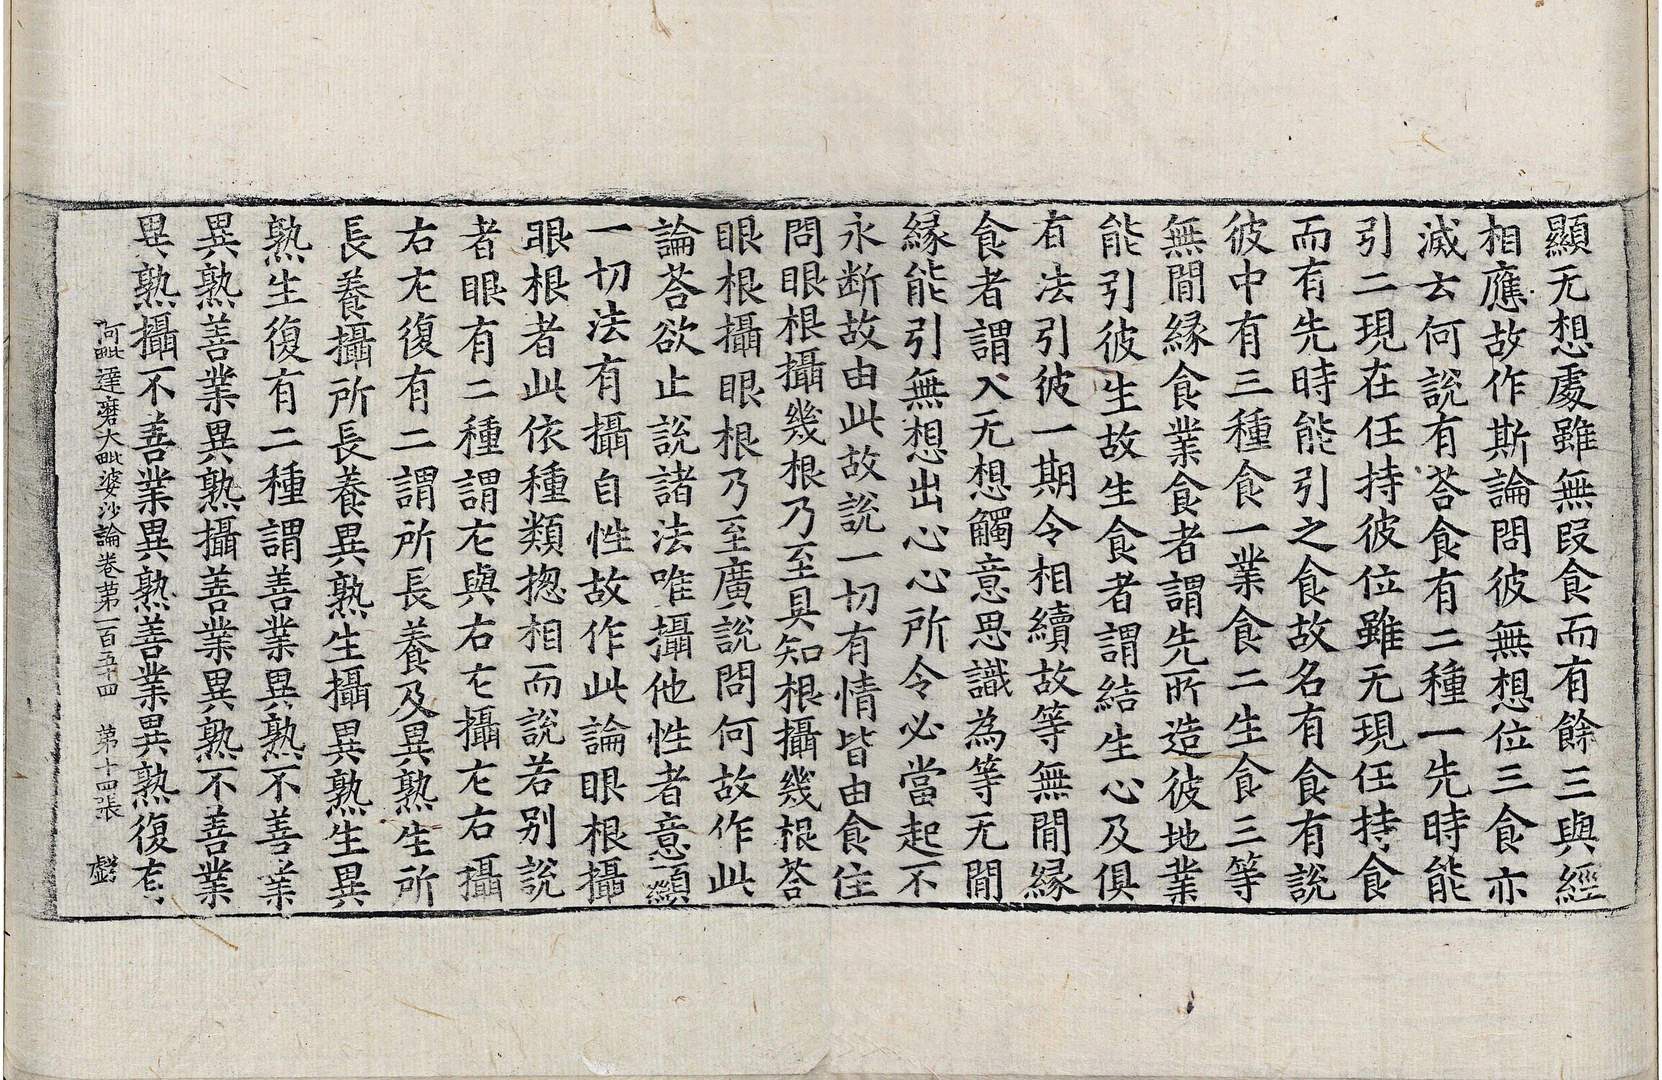 顯无想處雖無段食而有餘三與經
相應故作斯論問彼無想位三食亦
滅云何說有荅食有二種一先時能
引二現在任持彼位雖无現任持食
而有先時能引之食故名有食有說
彼中有三種食一業食二生食三等
無間縁食業食者謂先所造彼地業
能引彼生故生食者謂結生心及俱
有法引彼一期令相續故等無間縁
食者謂入无想觸意思識為等无間
縁能引無想出心心所令必當起不
永断故由此故說一切有情皆由食住
問眼根攝幾根乃至具知根攝幾根荅
眼根攝眼根乃至廣說問何故作此
論荅欲止說諸法唯攝他性者意顯
一切法有攝自性故作此論眼根攝
眼根者此依種類揔相而說若別說
者眼有二種謂左與右左攝左右攝
右左復有二謂所長養及異熟生所
長養攝所長養異熟生攝異熟生異
熟生復有二種謂善業異熟不善業
異熟善業異熟攝善業異熟不善業
異熟攝不善業異熟善業異熟復有
阿毗達磨大毗婆沙論卷第一百五十四　第十四張　戲